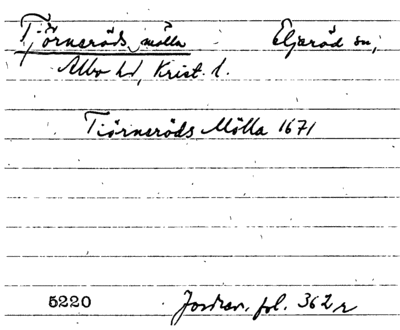 Tjörneröds mölla Eljaröd sn,
Albo hd, Krist. l.
Tiörneröds Mölla 1671
5220 Jordrev. fol. 362 r